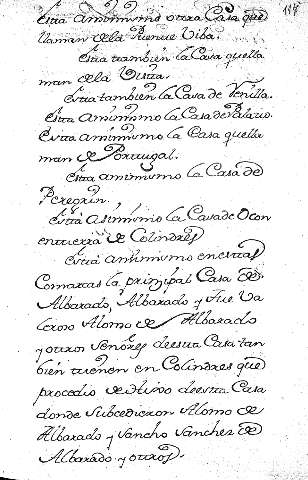 117
Está asimismo otra Casa que
llaman de la Puente Viba.
Está también la Casa quella
man de la Vista.
Está también la Casa de Venilla.
Está asimismo la Casa de Palacio.
Está asimismo la Casa quella
man de Portugal.
Está asimismo la Casa de
Peregrin.
Está asimismo la Casa de Ocon
en tierra de Colindres.
Está asimismo en estas
Comarcas la prinçipal Casa de
Albarado, Albarado y fue Va
leroso Alonso de Albarado
y otros Señores de esta Casa tan
bién tienen en Colindres que
procedio de de esta Casa
donde Subcedieron Alonso de
Albarado y Sancho Sanchez de
Albarado y otros.